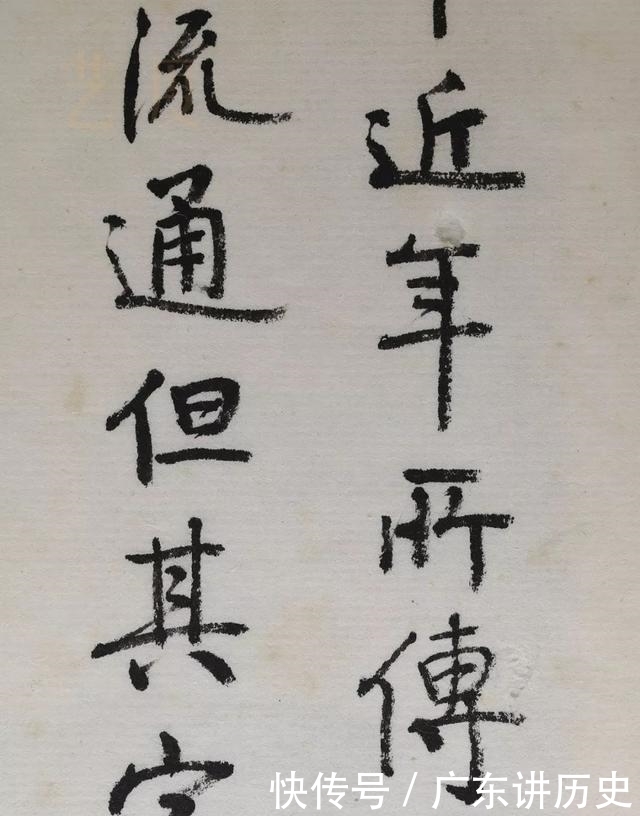 近年所傳
流通但其
快传号／广东讲历史